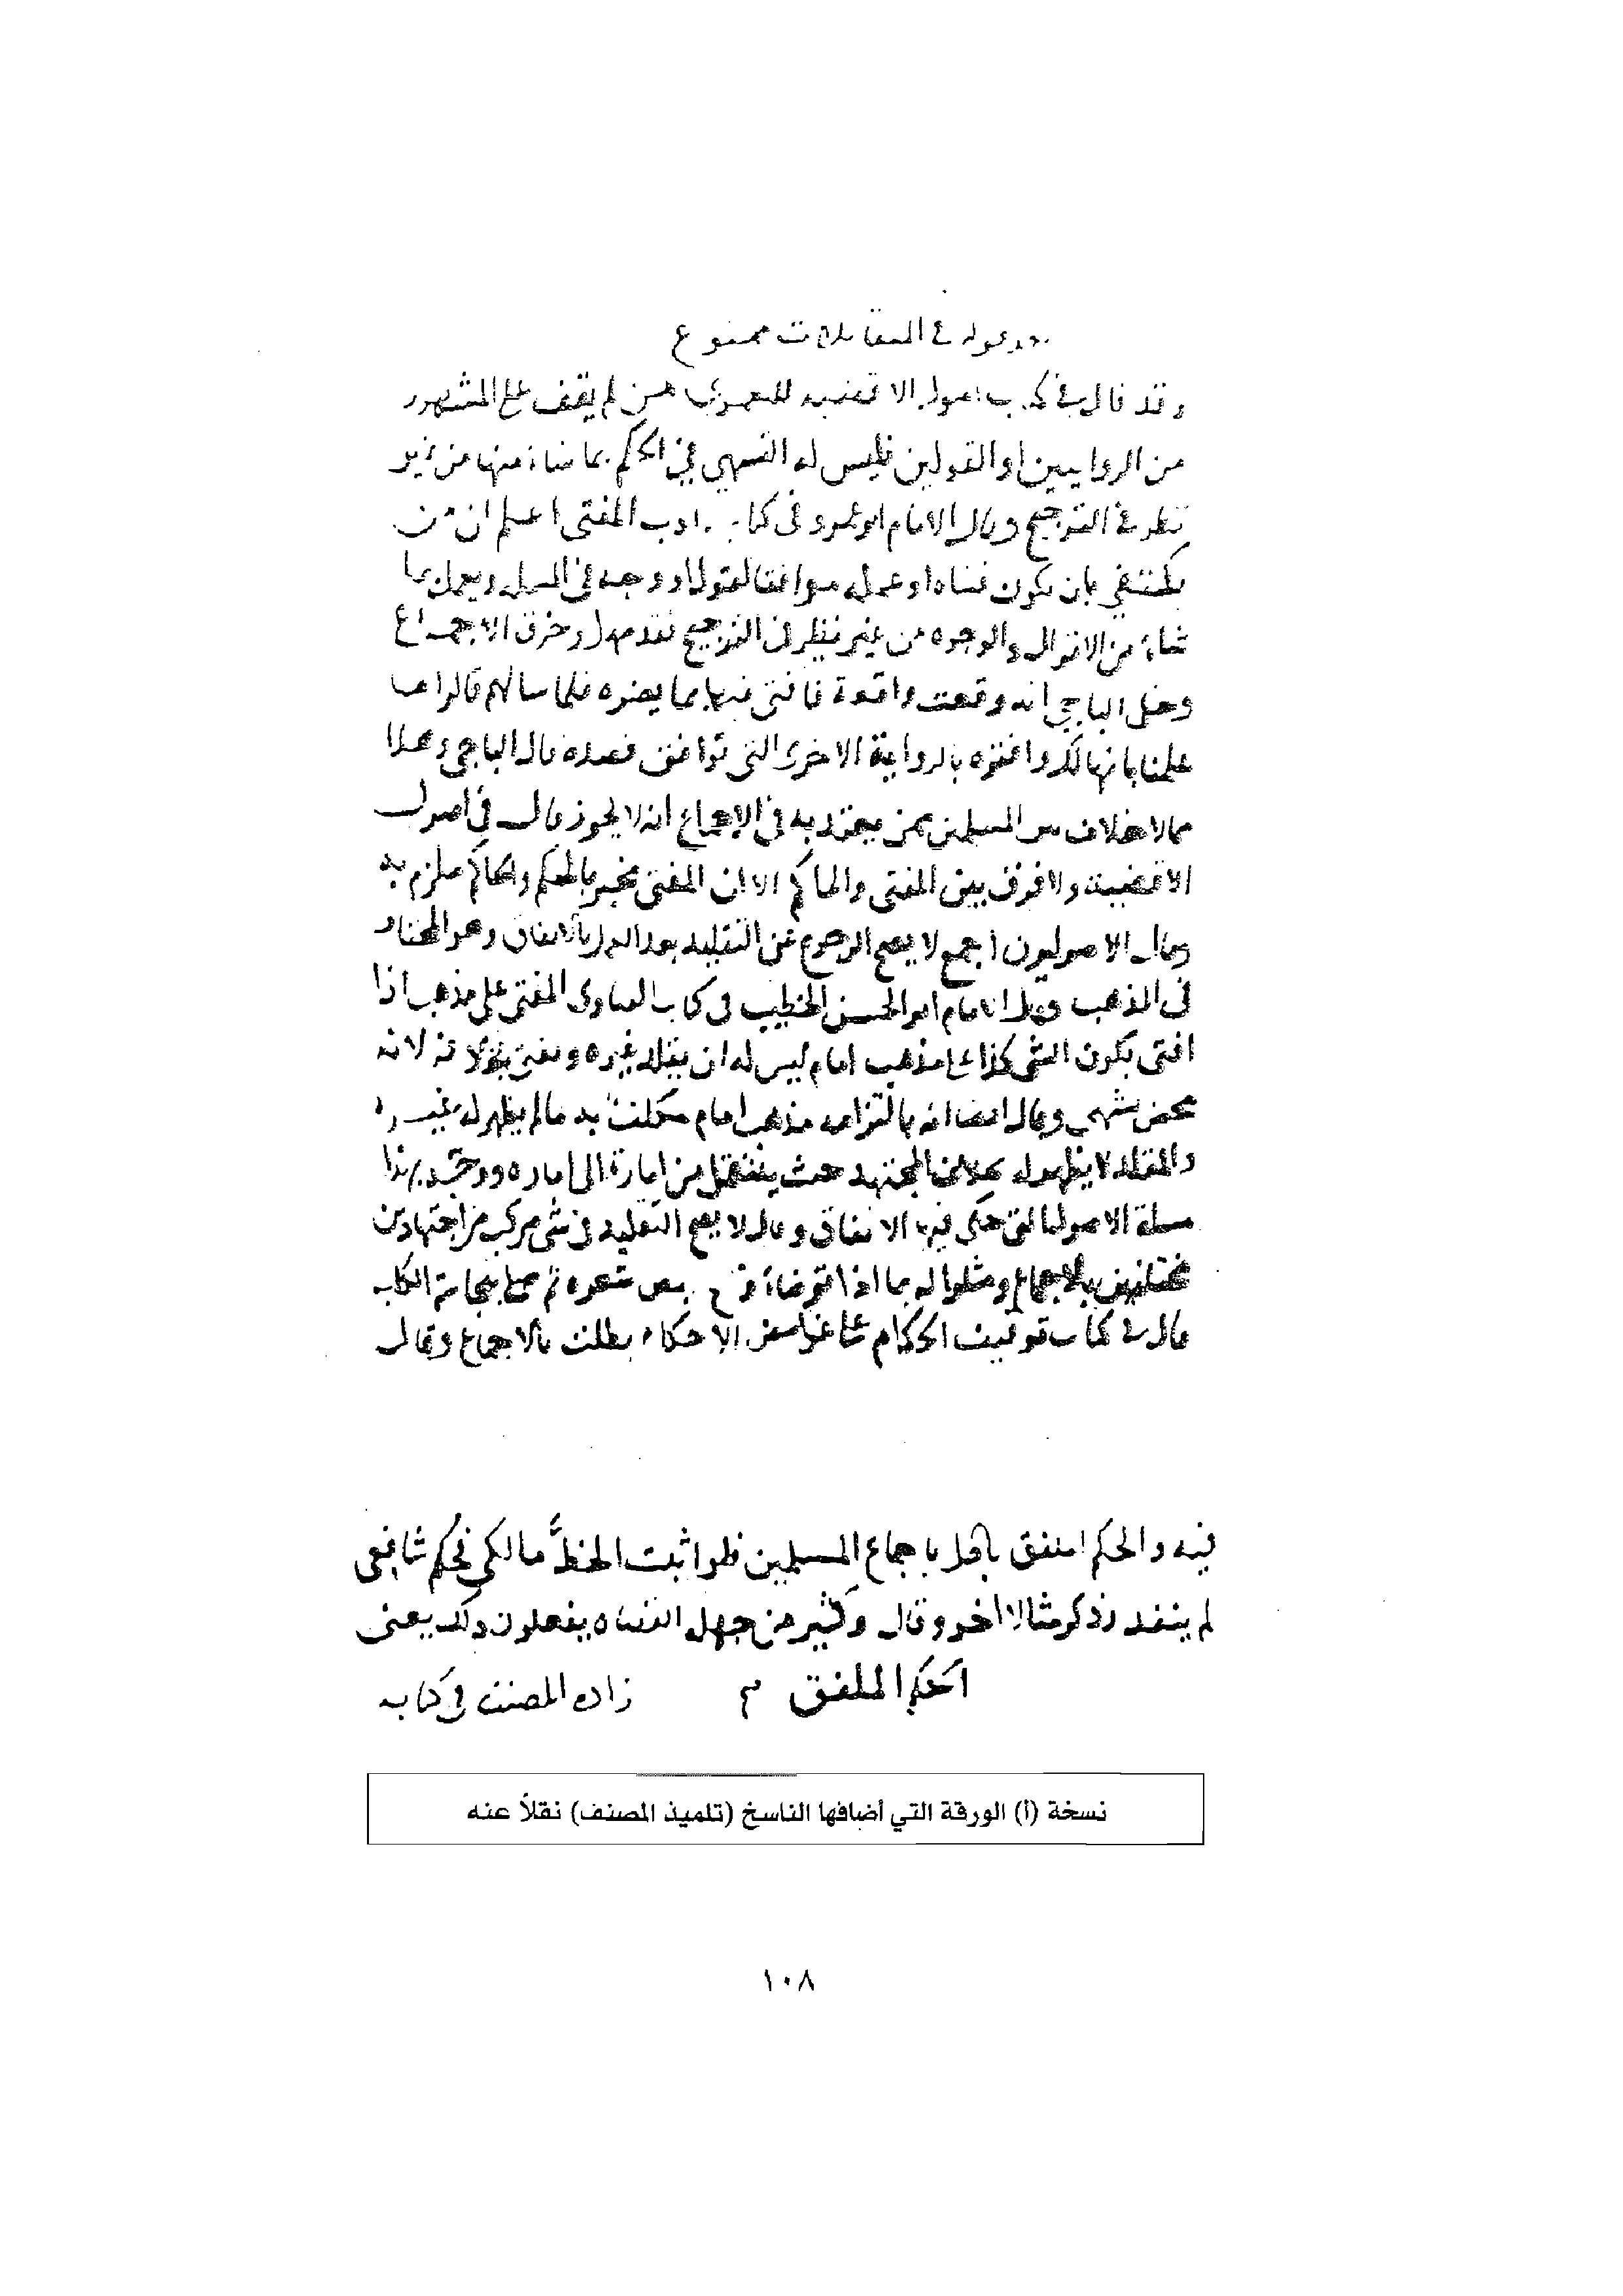 في المتقابلات ممنوع
وقد قال في كتاب اصول الاقضية لليعمري من لم يقف على المشهور
من الروايتين او القولين فليس له التشهي في الحكم بما شاء منها من غير
نظر في الترجيح وقال الامام ابو عمرو في كتاب ادب المفتي اعلم ان من
يكتفي بان يكون فتياه او عمله موافقا لقول او وجه في المسلة ويعمل بما
شاء من الاقوال والوجوه من غير نظر في الترجيح فقد جهل وخرق الاجماع
وحكى الباجي انه وقعت واقعة فافتي فيها بما يضره فلما سالهم قالوا ما
علمنا بانها لك وافتوه بالرواية الاخرى التي توافق قصده قال الباجي وهذا
مما لا خلاف بين المسلمين ممن يعتد به في الاجماع انه لا يجوز قال في اصول
الاقضية ولا فرق بين المفتي والحاكم الا ان المفتي مخبر بالحكم والحاكم ملزم به
وقال الاصوليون اجمع لا يصح الرجوع عن التقليد بعد العمل بالاتفاق وهو المختار
في المذهب وقال الامام ابو الحسن الخطيب في كتاب الفتاوى المفتي على مذهب اذا
افتى بكون الشي كذا على مذهب امام ليس له ان يقلد غيره ويفتي بخلافه لانه
محض تشهي وقال ايضا انه بالتزامه مذهب امام مكلف به مالم يظهر له غيره
والمقلد لا يظهر له بخلاف المجتهد حيث ينتقل من امارة الى امارة
مسلة الاصول التي حكى فيها الاتفاق وقال لا يصح التقليد في شي مركب من اجتهادين
مختلفين بالاجماع ومثلوا له بما اذا توضا ومسح بعض شعره ثم صلى بنجاسة الكلب
قال في كتاب توقيف الحكام على غوامض الاحكام بطلت بالاجماع وقال
فيه والحكم الملفق باطل باجماع المسلمين فلو اثبت الخط مالكي فحكم شافعي
لم ينفذ وذكر مثالا اخر وقال وكثير من جهلة القضاه يفعلون ذلك يعني
الحكم الملفق م زاده المصنف في كتابه
نسخة (أ) الورقة التي أضافها الناسخ (تلميذ المصنف) نقلاً عنه
١٠٨